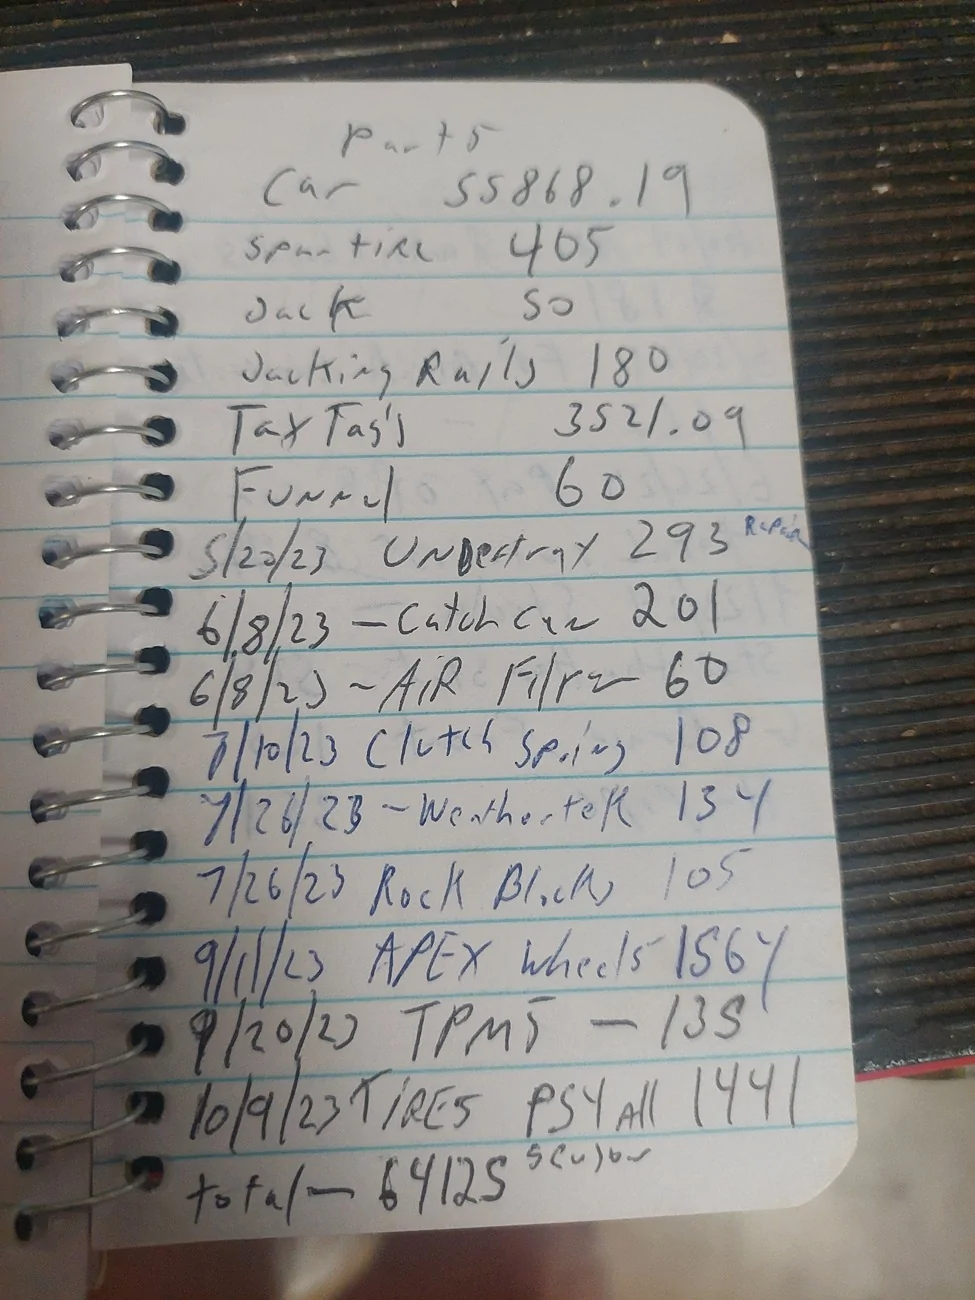 Parts
Car 55868.19
Spare tire 405
Jack 50
Jacking Rails 180
Tax Tag's 3521.09
Funnel 60
5/20/23 Undertray 293 Repair
6/8/23 - Catch Can 201
6/8/23 - AiR Filter 60
7/10/23 Clutch Spring 108
7/26/23 - Weathertek 134
7/26/23 Rock Blocks 105
9/11/23 APEX Wheels 1564
9/20/23 TPMS - 135
10/9/23 TiRES PS4 All 1441
total - 64125